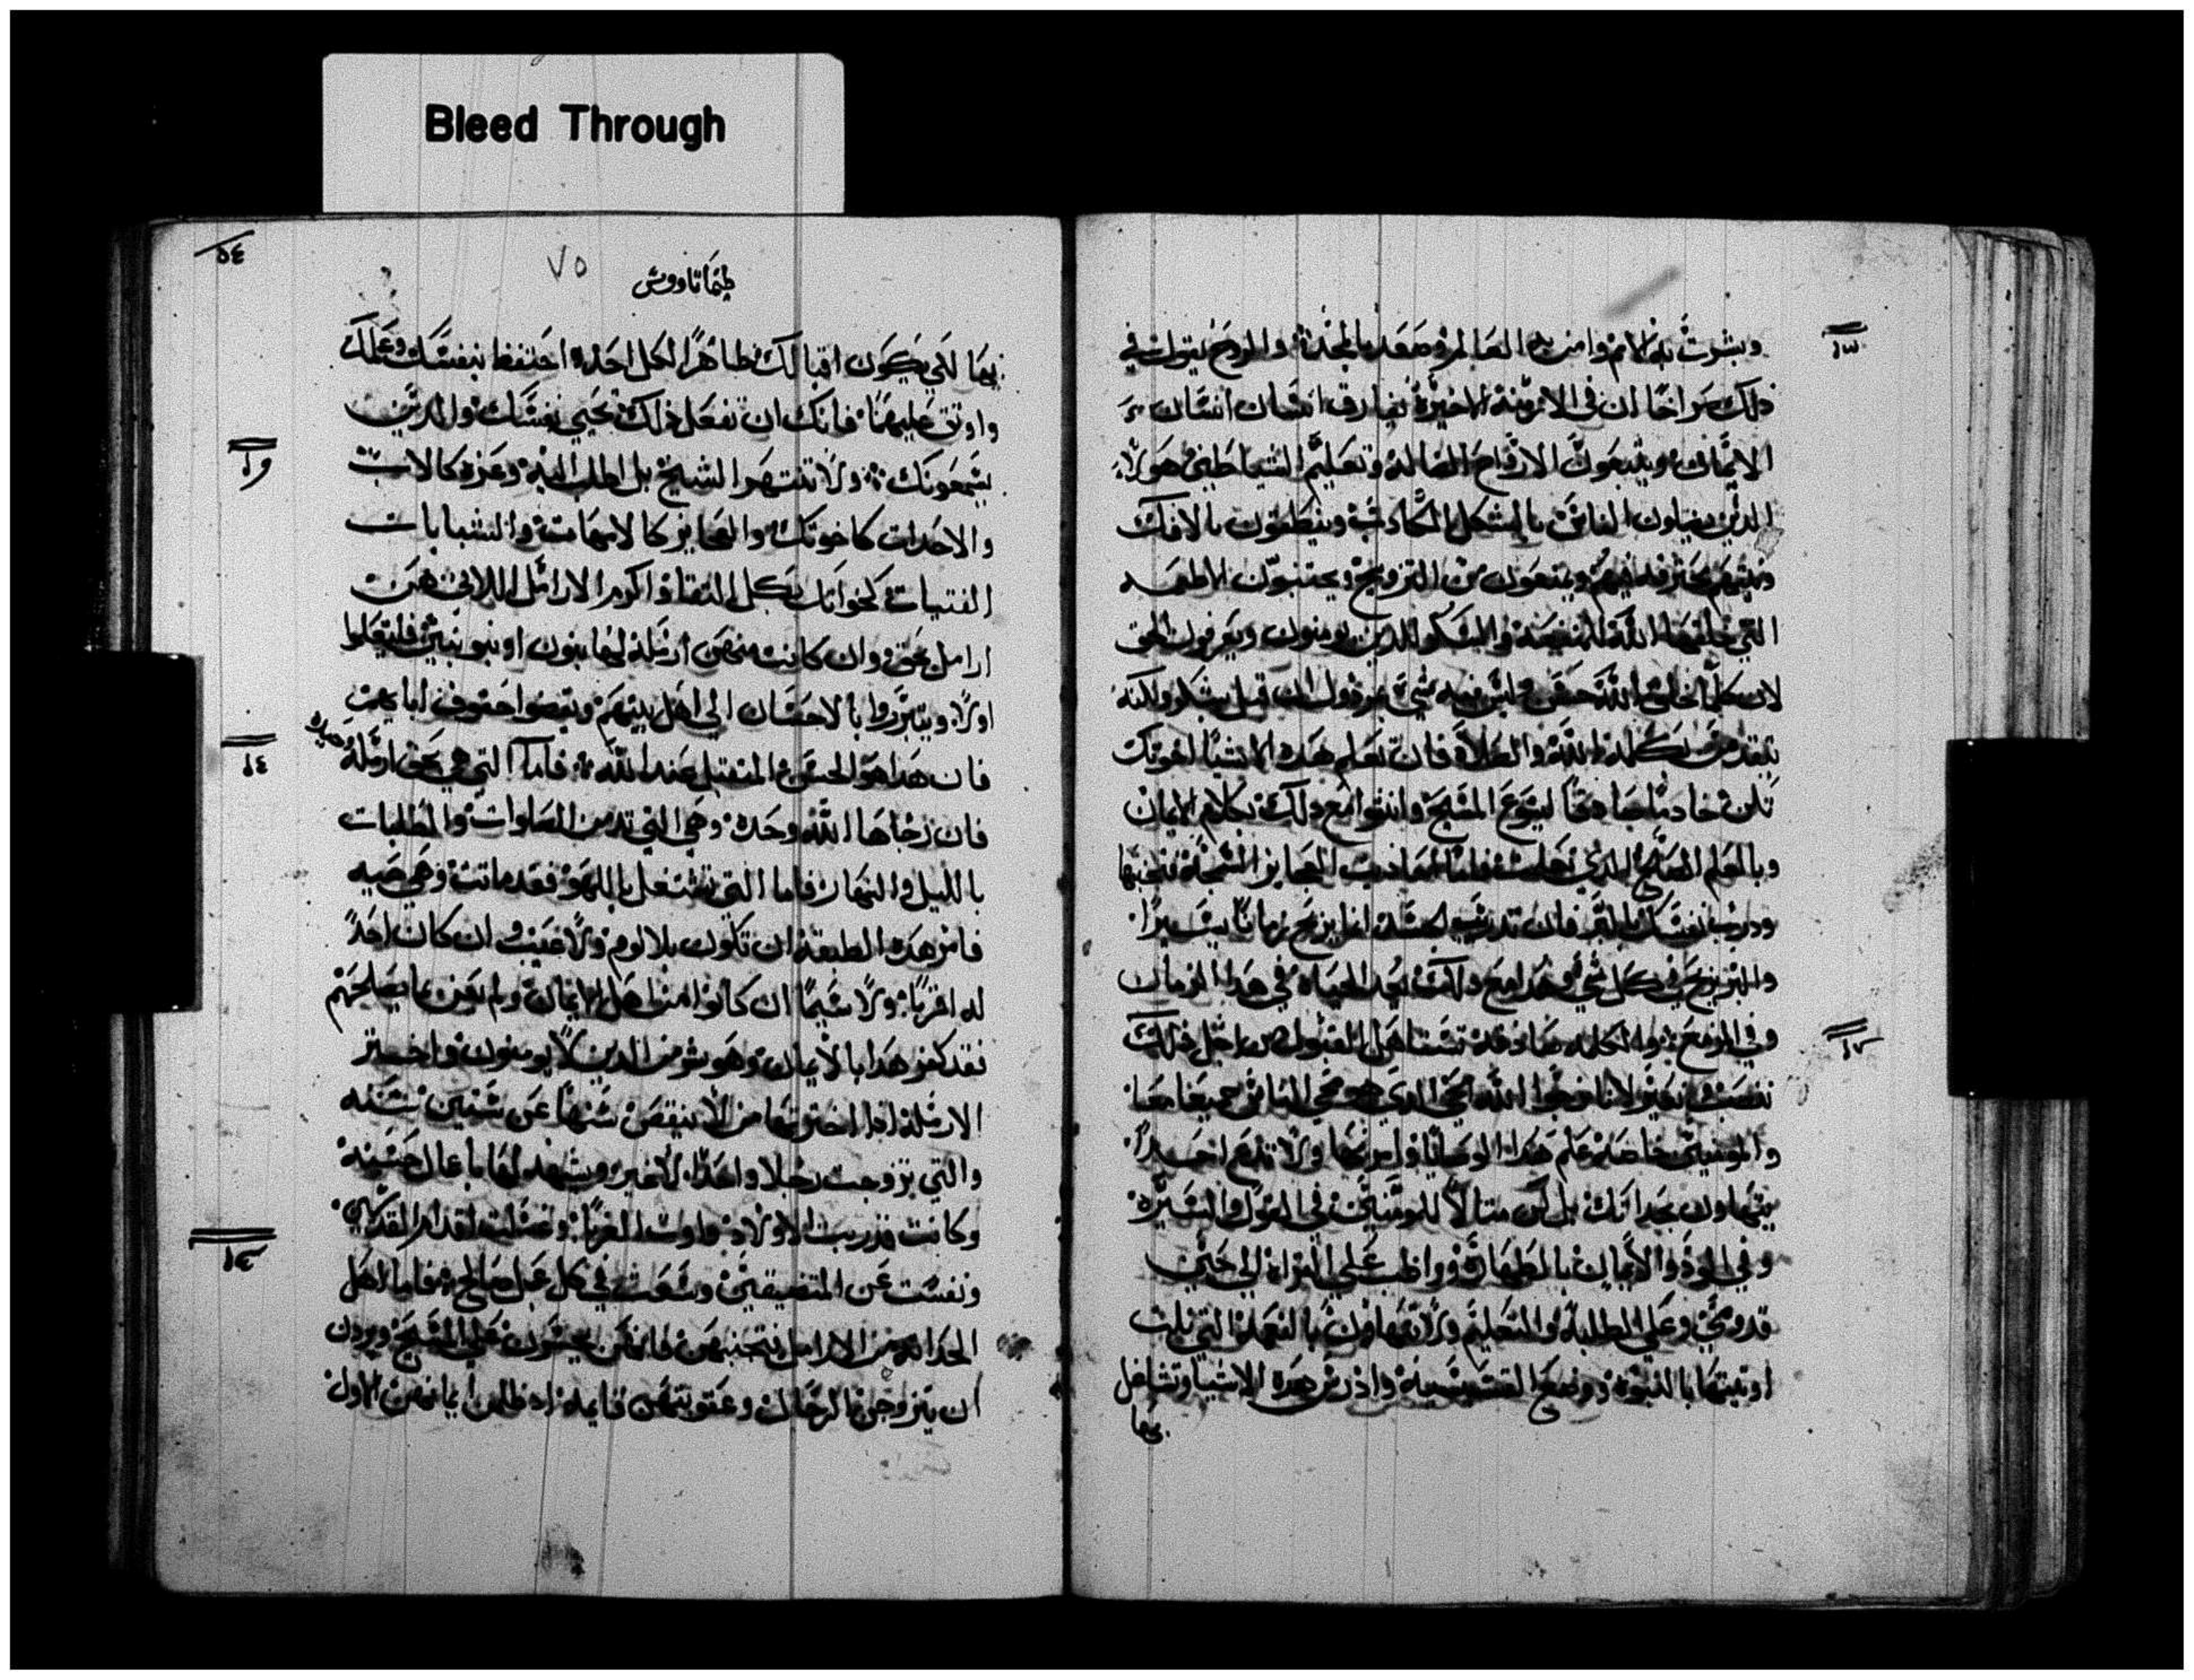 Bleed Through
وبشرت به الامم وامن به العالم وصعد بالمجد والروح يقول في
ذلك صراحًا ان في الازمنة الاخيرة يفارق انسان انسان
الايمان ويتبعون الارواح الضالة وتعليم الشياطين هولاء
الذين يضلون الناس بالشكل الكاذب وينطقون بالافك
ويمنعون من التزويج ويجتنبون الاطعمه
التي خلقها الله للمنفعة والشكر للذين يومنون ويعرفون الحق
لان كلما خلق الله حسن وليس فيه شي مرذول ان قبل بشكر ولكنه
يتقدس بكلمة الله والصلاة فان تعلم هذه الاشيا اخوتك
تكن خادمًا صادقًا ليسوع المسيح وانت مع ذلك بكلام الايمان
وبالعلم الصالح الذي تعلمت فاما احاديث العجايز السمجة فتجنبها
ودرب نفسك بالبر فان تدريب الجسد انما يربح زمانًا يسيرًا
والبر يربح في كل شي وهذا مع ذلك بعد الحياة في هذا الزمان
وفي المزمع والكلمه صادقة تستاهل القبول من اجل ذلك
ننصب ونعير لانا نرجوا الله الحي الذي هو محي الناس جميعًا
والمومنين خاصة علم هذه الوصايا وامر بها ولا تدع احدًا
يتهاون بحداثتك بل كن مثالا للمومنين في القول والسيرة
وفي الود والايمان بالطهارة وواظب على القراة الي حين
قدومي وعلى الطلبة والتعليم ولا تتهاون بالنعمة التي نلت
اوتيتها بالنبوة ووضع القسيسية وادرس هذه الاشيا وتشاغل
بها
٧٥
طيماتاووس
بها لكي يكون اقبالك ظاهرًا لكل احد احتفظ بنفسك وعملك
واوثق عليهما فانك ان تفعل ذلك تحيي نفسك والذين
يسمعونك ولا تنتهر الشيخ بل اطلب اليه وعزه كالاب
والاحداث كاخوتك والعجايز كالامهات والشابات
الفتيات كاخواتك بكل النقاوة اكرم الارامل اللاتي هن
ارامل بحق وان كانت منهن ارملة لها بنون او بنو بنين فليتعلموا
اولا ويتبرروا بالاحسان الي اهل بيتهم ويقضوا حقوق ابايهم
فان هذا هو الحسن المتقبل عند الله فاما التي هي بحق ارملة
فان رجاها الله وحده وهي التي تدمن الصلوات والطلبات
بالليل والنهار فاما التي تشتغل باللهو فقد ماتت وهي حيه
فامر هذه الطبقة ان تكون بلا لوم ولا عيب وان كان احدًا
له اقربا ولا سيما ان كانوا من اهل الايمان ولم يعن بما يصلحهم
فقد كفر هذا بالايمان وهو شر من الذين لا يومنون واختر
الارملة اذا اخترتها من لا ينتقص سنها عن ستين سنه
والتي تزوجت رجلا واحدًا لا غير ويشهد لها باعمال حسنة
وكانت قد ربت الاولاد واوت الغربا وغسلت اقدام القديسين
ونفست عن المتضيقين وسعت في كل عمل صالح فاما اهل
الحداثة من الارامل فتجنبهن فانهن يجسرن على المسيح ويردن
ان يتزوجن بالرجال وعقوبتهن قايمة اذ ظلمن ايمانهن الاول